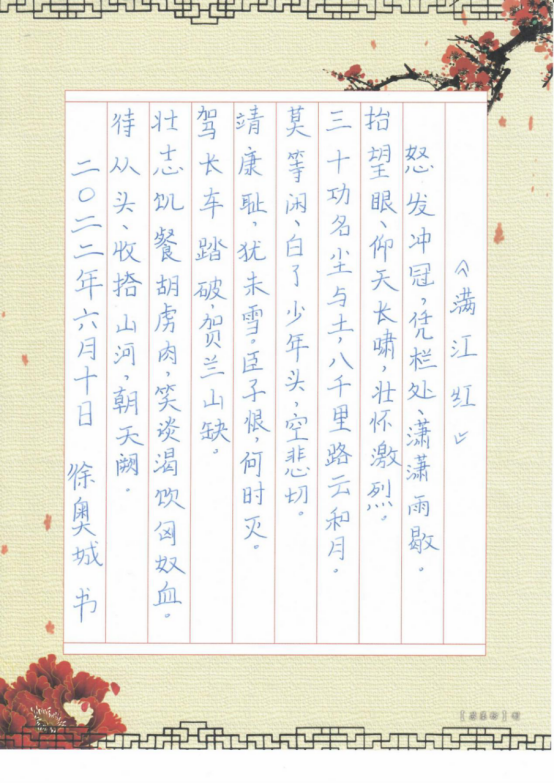 《满江红》
怒发冲冠，凭栏处、潇潇雨歇。
抬望眼、仰天长啸，壮怀激烈。
三十功名尘与土，八千里路云和月。
莫等闲、白了少年头，空悲切。
靖康耻，犹未雪。臣子恨，何时灭。
驾长车踏破，贺兰山缺。
壮志饥餐胡虏肉，笑谈渴饮匈奴血。
待从头、收捨山河，朝天阙。
二〇二二年六月十日 徐奥城 书